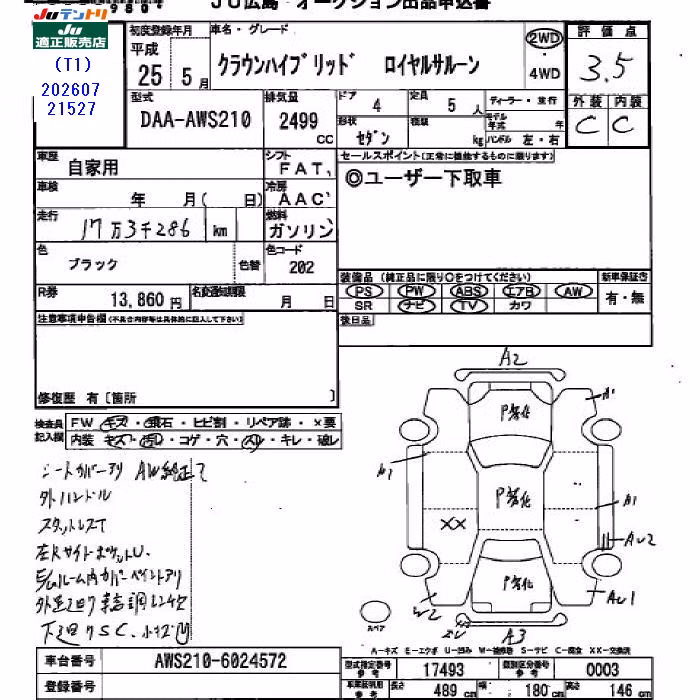 9804 JU広島 オークション出品申込書
Juテントリ
Ju
適正販売店
(T1)
202607
21527
初度登録年月
平成
25 5月
車名・グレード
クラウンハイブリッド ロイヤルサルーン
2WD
・4WD
評価点
3.5
外装 内装
C C
型式
DAA-AWS210
排気量
2499
cc
ドア 4
定員 5人
ディーラー・並行
モデル年式 年
形状 セダン
積載 kg
ハンドル 左・右
車歴 自家用
シフト FAT
車検 年 月( 日)
冷房 AAC
走行 17万3千286 km
燃料 ガソリン
色 ブラック 色替
色コード 202
R券 13,860円
名変通知期限 月 日
セールスポイント(正常に機能するものに限ります)
◎ユーザー下取車
装備品(純正品に限り○をつけてください)
新車保証書
PS・PW・ABS・エアB・AW・
SR ナビ・TV・カワ
有・無
後日品
注意事項申告欄(不具合内容等は具体的に記入して下さい)
修復歴 有〔箇所 〕
検査員記入欄
FW キズ・飛石・ヒビ割・リペア跡・×要
内装 キズ・汚レ・コゲ・穴・スレ・キレ・破レ
シートカバーアリ AW純正て
外ハンドル
A2
P劣化
P劣化
P劣化
A1
A1
A1
XX
AU2
AU1
W2
A3
スペア
A-キズ E-エクボ U-凹み W-補修跡 S-サビ C-腐食 XX-交換済
車台番号 AWS210-6024572
登録番号
型式指定番号 参考 17493
類別区分番号 参考 0003
車検証明用 参考 長さ 489cm 幅 180cm 高さ 146cm